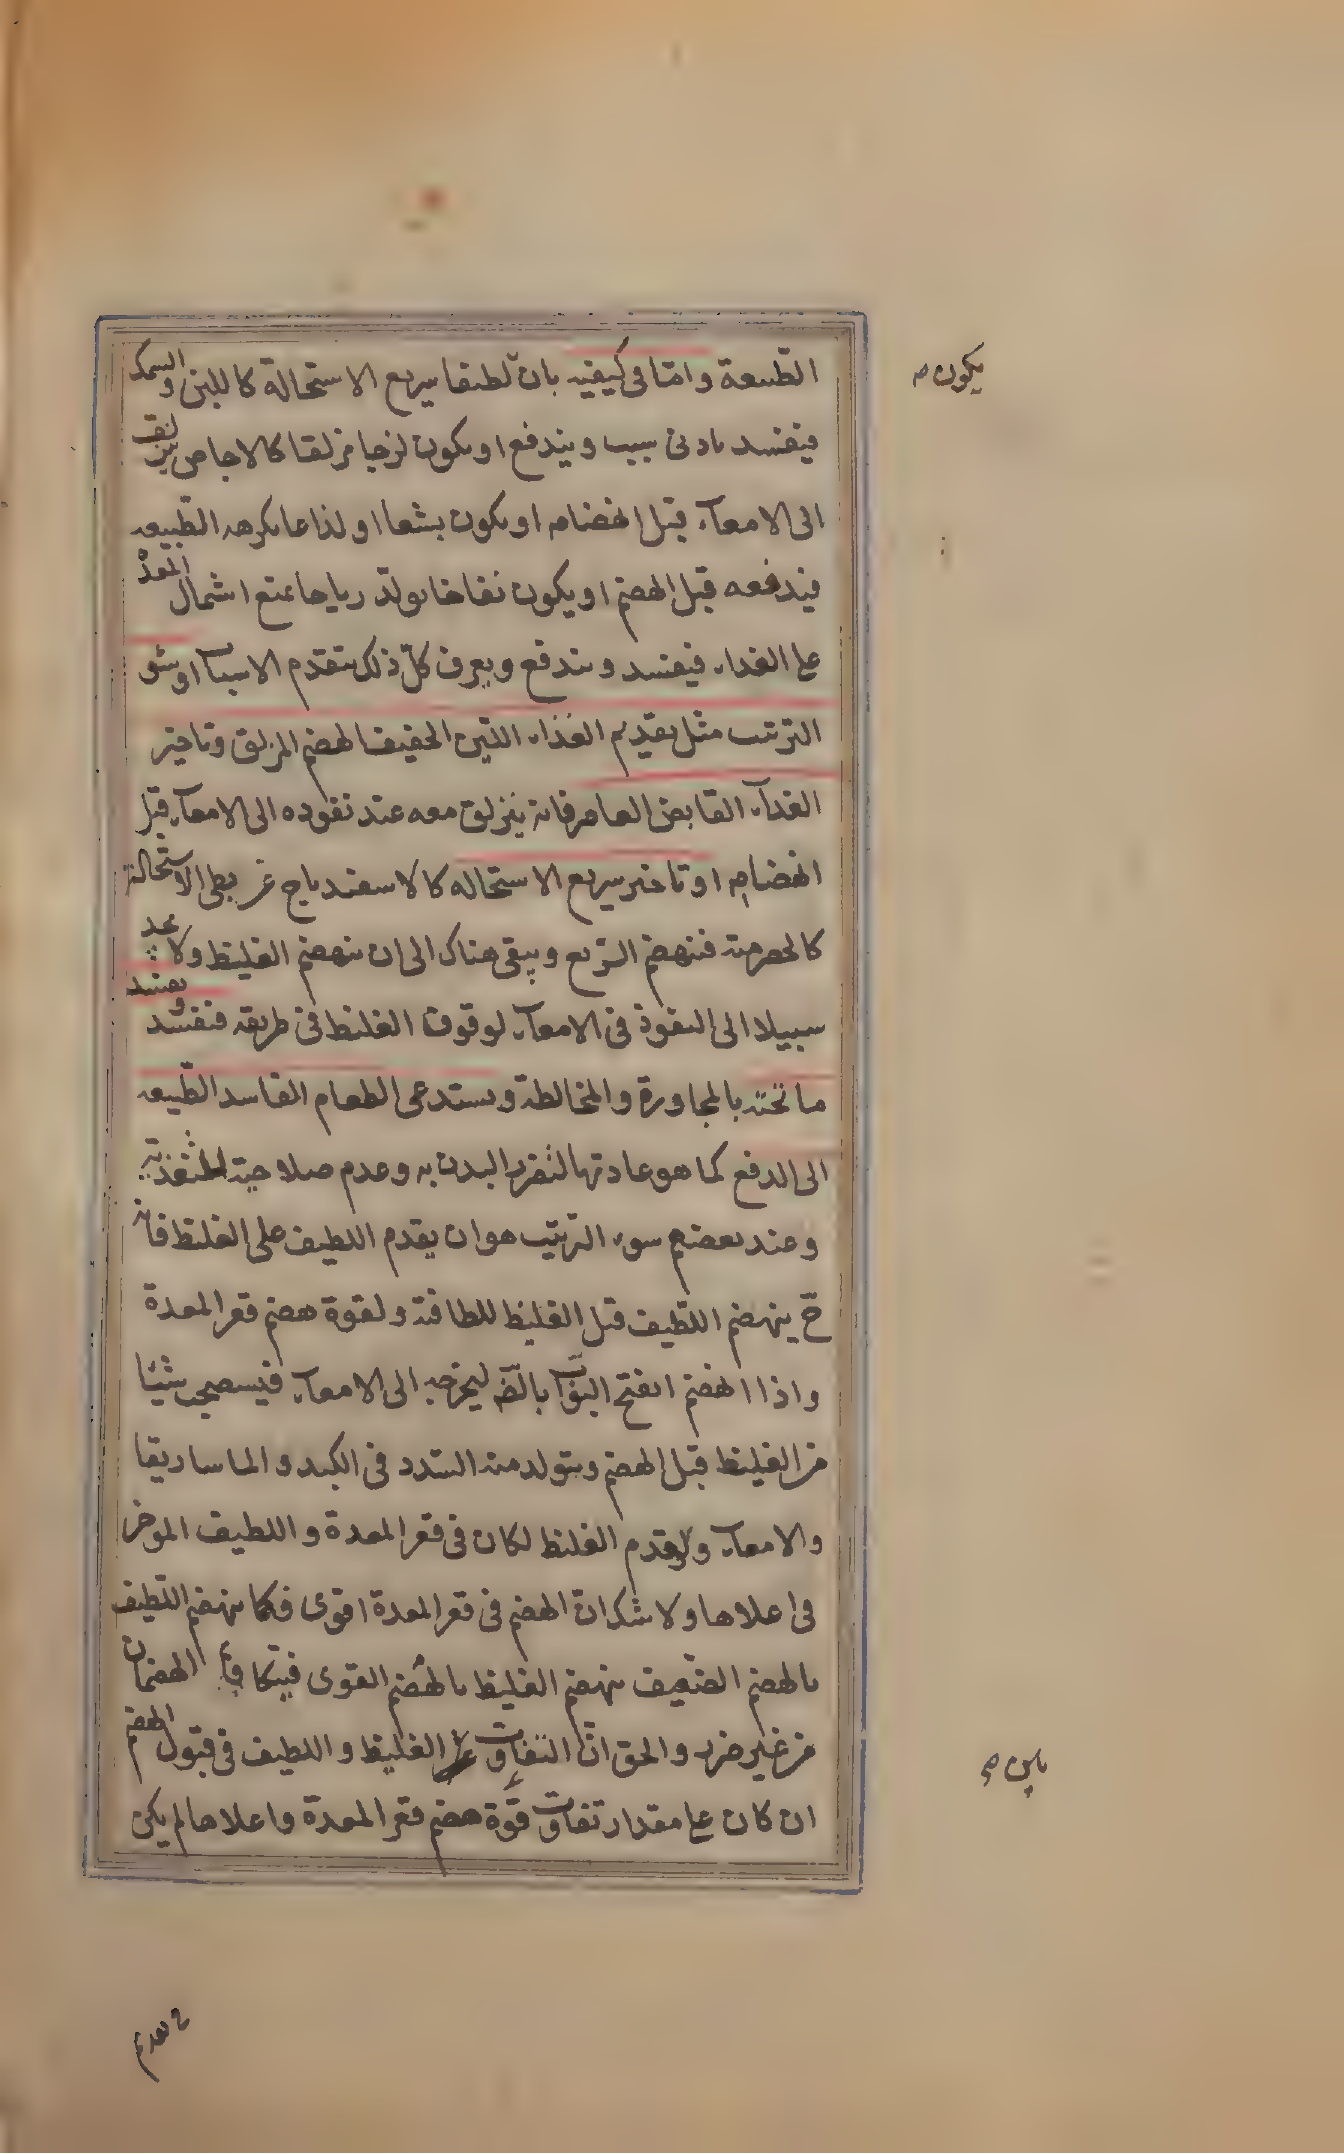 الطبيعة واما فى كيفيته بان لطيفا سريع الاستحالة كاللبن والسمك
فيفسد بادنى سبب ويندفع او يكون لزجا مزلقا كالاجاص ينزلق
الى الامعآء قبل انهضامه او يكون بشعا او لذاعا يكرهه الطبيعه
فيدفعه قبل الهضم او يكون نفاخا يولد رياحا يمنع اشتمال المعدة
على الغداء فيفسد ويندفع ويعرف كلّ ذلك بتقدم الاسباب او سوء
الترتيب مثل تقديم الغذاء اللين الخفيف الهضم المزلق وتاخير
الغدآء القابض العاصر فانه ينزلق معه عند نفوده الى الامعآء قبل
انهضامه او تاخير سريع الاستحاله كالاسفندباج عن بطى الاستحالة
كالحصرمية فينهضم السّريع ويبقى هناك الى ان ينهضم الغليظ ولا يجد
سبيلا الى النفوذ فى الامعآء لوقوف الغليظ فى طريقه فيفسد ويفسد
ما تحته بالمجاورة والمخالطة ويستدعى الطعام الفاسد الطّبيعه
الى الدفع كما هو عادتها لتضرر البدن به وعدم صلاحيته للتغذية
وعند بعضهم سوء الترتيب هو ان يقدم اللطيف على الغليظ فانه
ح ينهضم اللطيف قبل الغليظ للطافته ولقوة هضم قعر المعدة
واذا انهضم انفتح البوّاب بالضّ ليخرجه الى الامعآء فيستصحب شيئا
من الغليظ قبل الهضم ويتولد منه السّدد فى الكبد والماساريقا
والامعآء ولو قدم الغليظ لكان فى قعر المعدة واللطيف الموخر
فى اعلاها ولا شك ان الهضم فى قعر المعدة اقوى فكما ينهضم اللّطيف
بالهضم الضّعيف ينهضم الغليظ بالهضم القوى فيتكافأ الهضمان
من غير ضرر والحق انّ التفاوت الغليظ واللطيف فى قبول الهضم
ان كان على مقدار تفاوت قوّة هضم قعر المعدة واعلاها لم يكن
يكون ص
بين ص